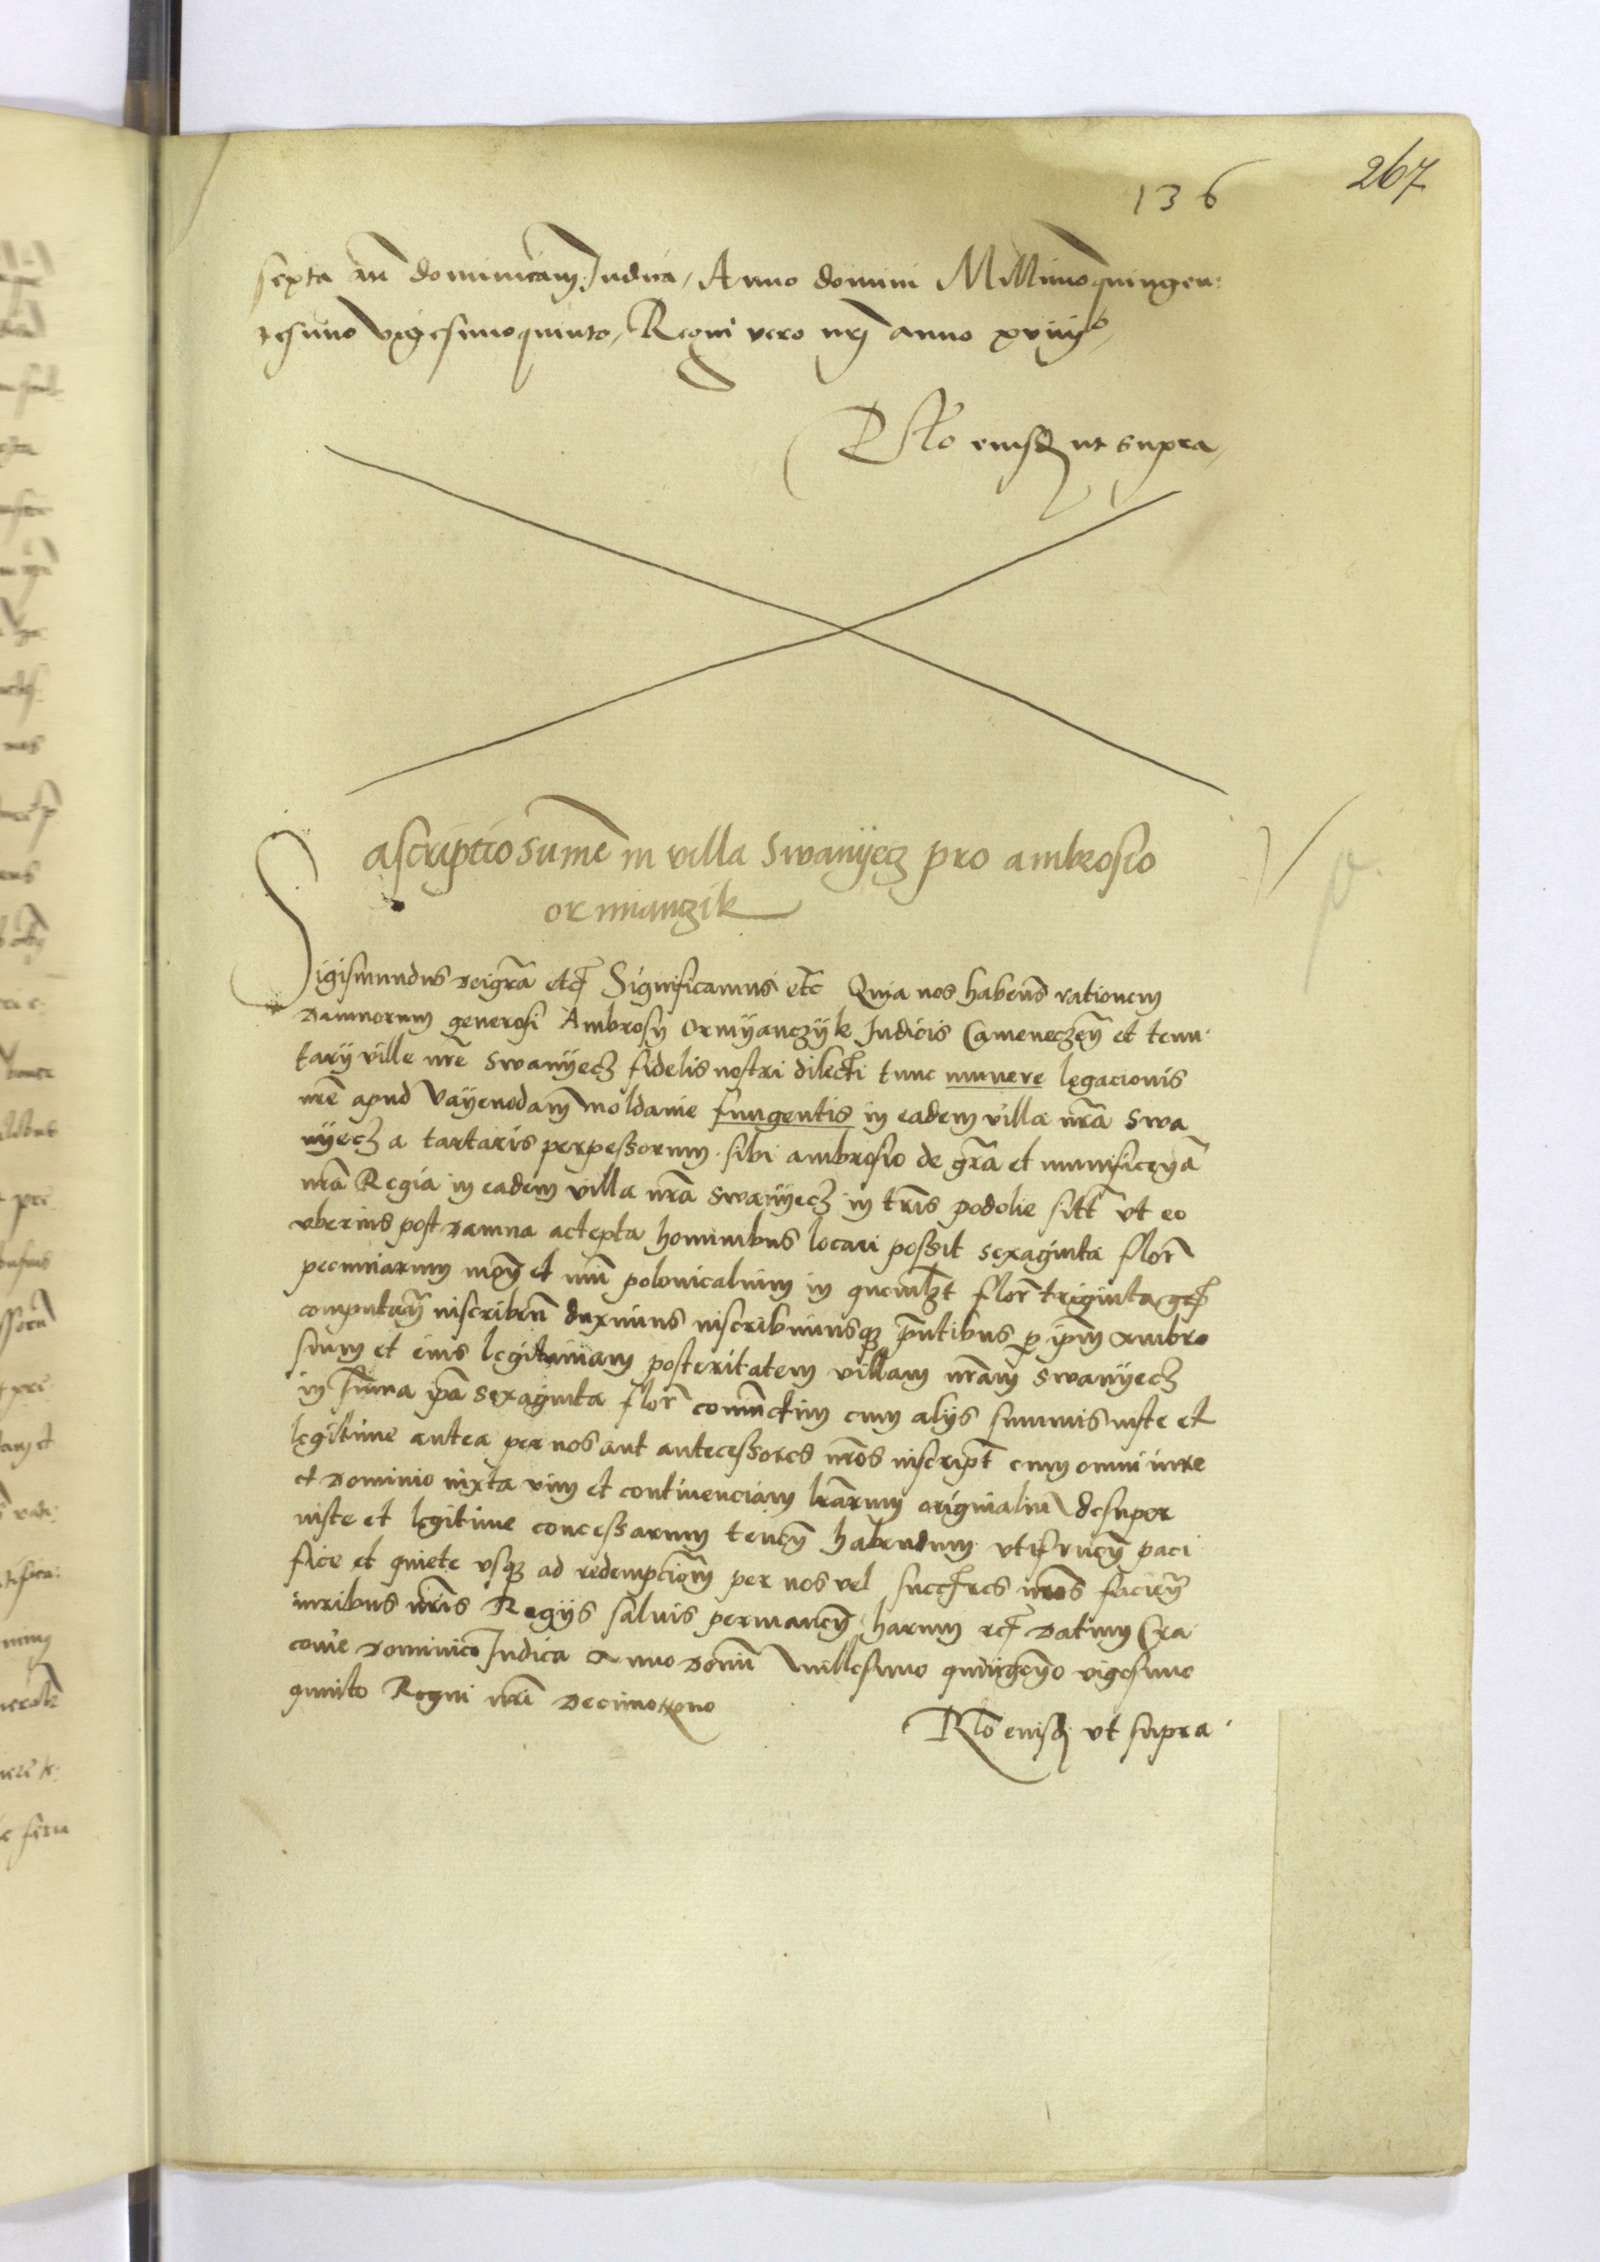 267
136
sexta an̄ dominicam Judica, Anno domini Millimo quingen:
tesimo vigesimoquinto, Regni vero nrj anno xviiij°,
Rlo eiusdꝫ ut supra,
ascriptio sume in villa Swanyecz pro ambrosio
ormianczik
Sigismundus dei gr̄a etc̄ Significamus etc̄ Quia nos habend̄ rationem
damnorum generosi Ambrosy ormyanczyk Judicis Cameneczen̄ et tenu
tarij ville nr̄e swanyecz fidelis nostri dilecti tunc munere legacionis
nr̄e apud vayevodam moldavie fungentis in eadem villa nr̄a swa
nyecz a tartaris perpessorum sibi ambrosio de gr̄a et munificen̄a
nr̄a Regia in eadem villa nr̄a swanyecz in tr̄is podolie sitt̄ ut eo
uberius post damna accepta hominibus locari possit sexaginta flor̄
pecuniarum mon̄ et nu̅i polonicalium in quemlꝫt flor̄ triginta gr̄
computan̄ inscriben̄ duximus inscribimusqꝫ pn̄tibus p ipm̄ ambro
sium et eius legitimam posteritatem villam nr̄am swanyecz
in sum̄a ipa̅ sexaginta flor̄ coniunctim cum alijs summis iuste et
legitime antea per nos aut antecessores nr̄os inscript̄ cum omni iure
et dominio iuxta vim et continenciam lr̄arum originaliu̅ desuper
iuste et legitime concessarum tenen̄ habendum utifruen̄ paci
fice et quiete usqꝫ ad redempcion̄m per nos vel succ̄res nr̄os facien̄
iuribus nr̄is Regijs salvis permanen̄ harum etc̄ datum Cra
covie dominico Judica Anno domin̄ millesimo quingen̄o vigesimo
quinto Regni nr̄i decimonono
Rlo eiusdꝫ ut supra